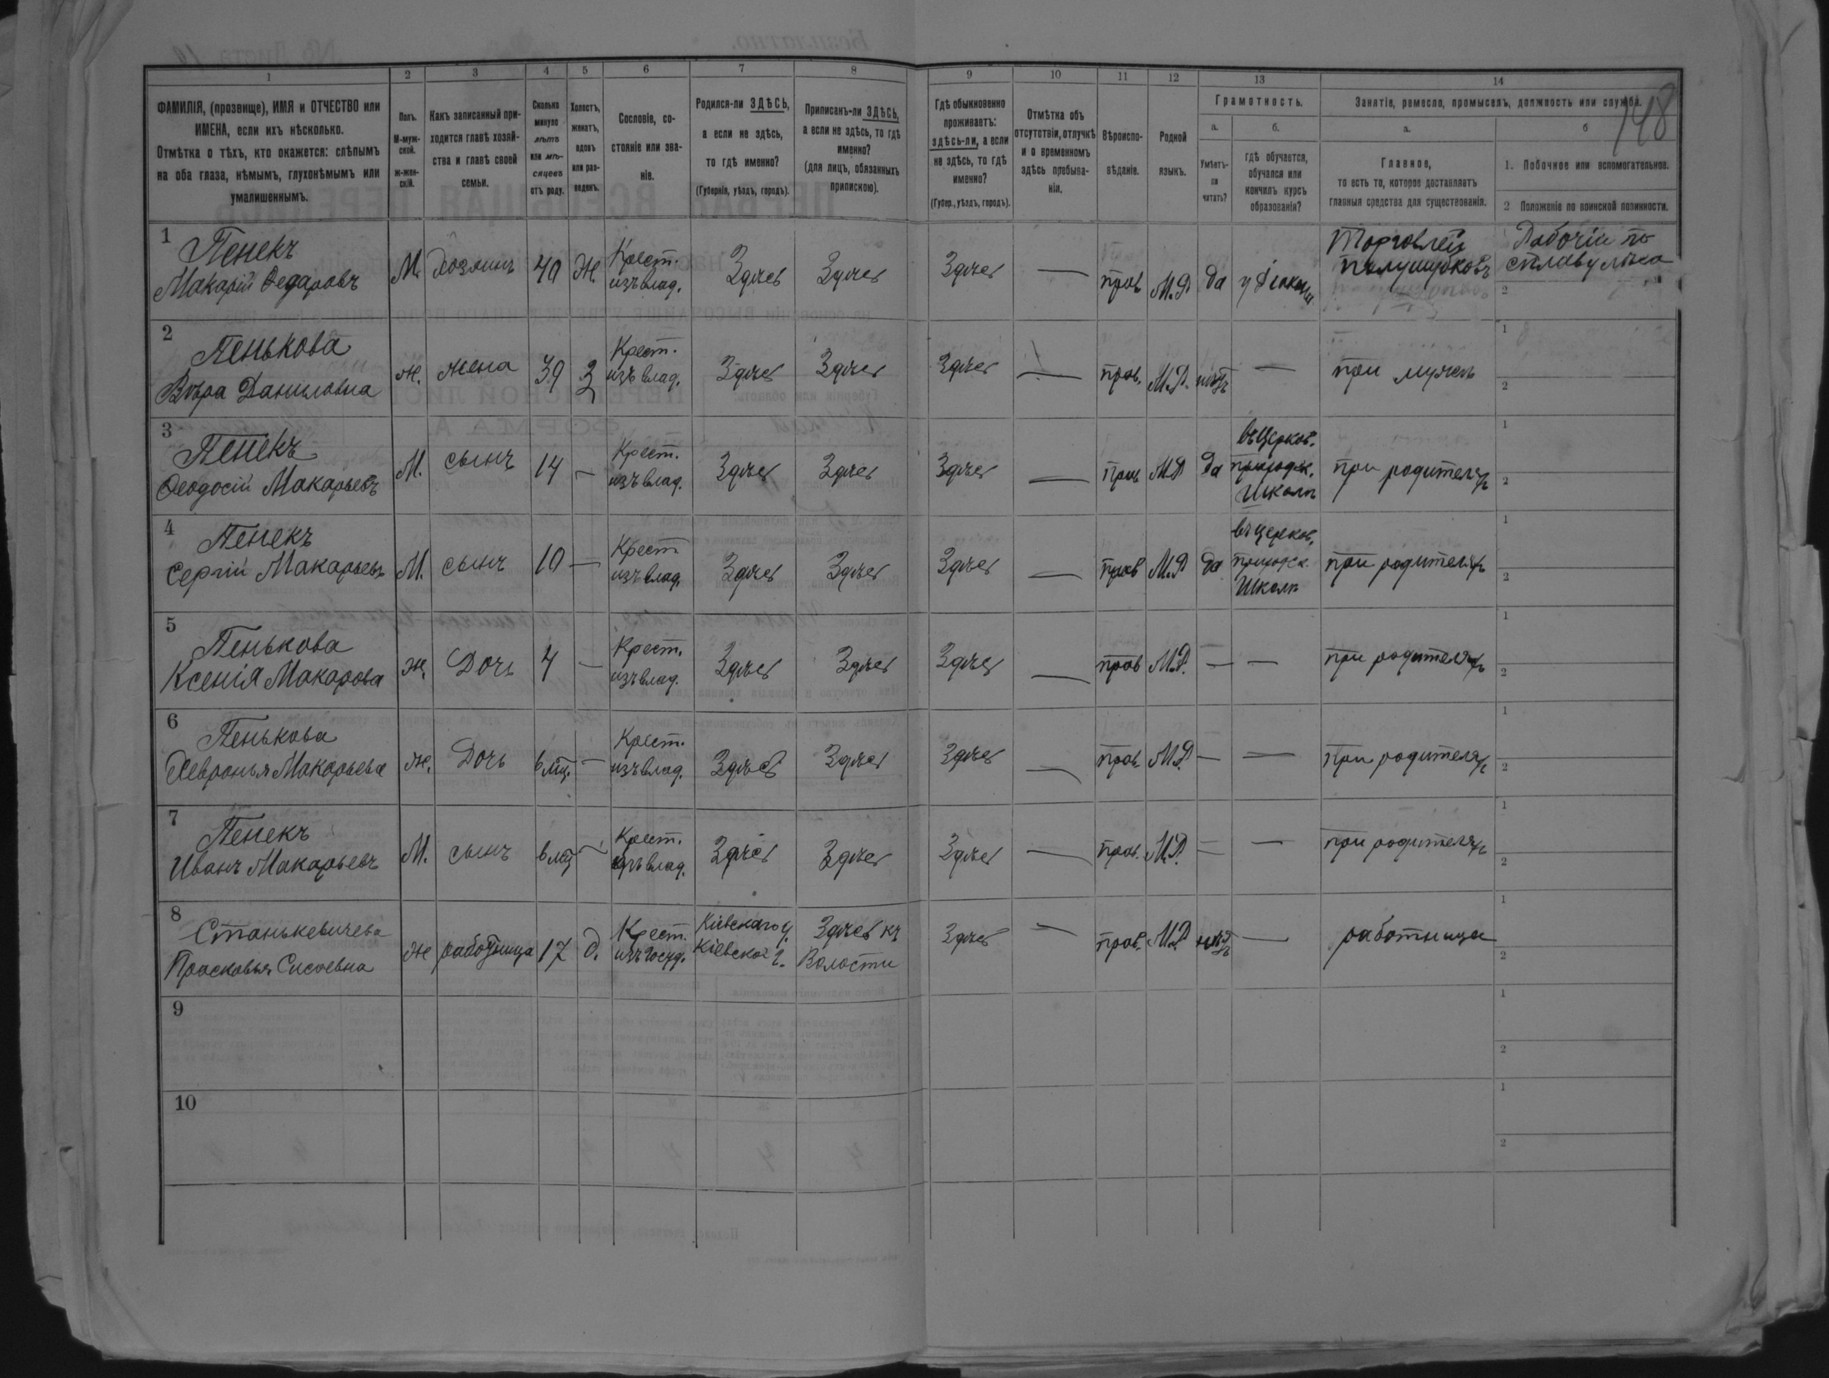 1 2 3 4 5 6 7 8 9 10 11 12 13 14
148
ФАМИЛІЯ, (прозвище), ИМЯ и ОТЧЕСТВО или
ИМЕНА, если ихъ нѣсколько.
Отмѣтка о тѣхъ, кто окажется: слѣпымъ
на оба глаза, нѣмымъ, глухонѣмымъ или
умалишеннымъ.
Полъ.
М-муж-
ской.
Ж-жен-
скій.
Какъ записанный при-
ходится главѣ хозяй-
ства и главѣ своей
семьи.
Сколько
минуло
лѣтъ
или мѣ-
сяцевъ
отъ роду.
Холостъ,
женатъ,
вдовъ
или раз-
веденъ.
Сословіе, со-
стояніе или зва-
ніе.
Родился-ли ЗДѢСЬ,
а если не здѣсь,
то гдѣ именно?
(Губернія, уѣздъ, городъ).
Приписанъ-ли ЗДѢСЬ,
а если не здѣсь, то гдѣ
именно?
(для лицъ, обязанныхъ
припискою).
Гдѣ обыкновенно
проживаетъ:
здѣсь-ли, а если
не здѣсь, то гдѣ
именно?
(Губер., уѣздъ, городъ).
Отмѣтка объ
отсутствіи, отлучкѣ
и о временномъ
здѣсь пребыва-
ніи.
Вѣроиспо-
вѣданіе.
Родной
языкъ.
Грамотность.
а.
Умѣетъ-
ли
читать?
б.
гдѣ обучается,
обучался или
кончилъ курсъ
образованія?
Занятіе, ремесло, промыселъ, должность или служба.
а.
Главное,
то есть то, которое доставляетъ
главныя средства для существованія.
б
1. Побочное или вспомогательное.
2 Положеніе по воинской повинности.
1
Пенекъ
Макарій Федаровъ
М. Хозяинъ 40 Ж. Крест.
изъ влад. Здѣсь Здѣсь Здѣсь — прав М.Р. да у
Торговлей
Рабочій по
сплаву лѣса
2
2
Пенькова
Вѣра Даниловна
ж. жена 39 З Крест.
изъ влад. Здѣсь Здѣсь Здѣсь — прав. М.Р. нѣтъ — при мужѣ
1
2
3
Пенекъ
Феодосій Макарьевъ
М. сынъ 14 — Крест.
изъ влад. Здѣсь Здѣсь Здѣсь — прав М.Р да
въ Церков.
приходск.
Школѣ
при родителяхъ
1
2
4
Пенекъ
Сергій Макарьевъ
М. сынъ 10 — Крест
изъ влад. Здѣсь Здѣсь Здѣсь — прав М.Р да
въ церков.
приходск.
Школѣ
при родителяхъ
1
2
5
Пенькова
Ксенія Макарова
ж Дочь 4 — Крест.
изъ влад. Здѣсь Здѣсь Здѣсь — прав М.Р. — — при родителяхъ
1
2
6
Пенькова
Февронья Макарьева
ж. Дочь 6 мц. — Крест.
изъ влад. Здѣсь Здѣсь Здѣсь — прав М.Р. — — при родителяхъ
1
2
7
Пенекъ
Иванъ Макарьевъ
М. сынъ 6 мц — Крест.
изъ влад. Здѣсь Здѣсь Здѣсь — прав. М.Р. — — при родителяхъ
1
2
8
Станькевичева
Прасковья Сисоевна
ж работница 17 д. Крест.
изъ госуд. Кіевскаго у.
Кіевской г. Здѣсь къ
Волости Здѣсь — прав. М.Р нѣтъ — работница
1
2
9
1
2
10
1
2